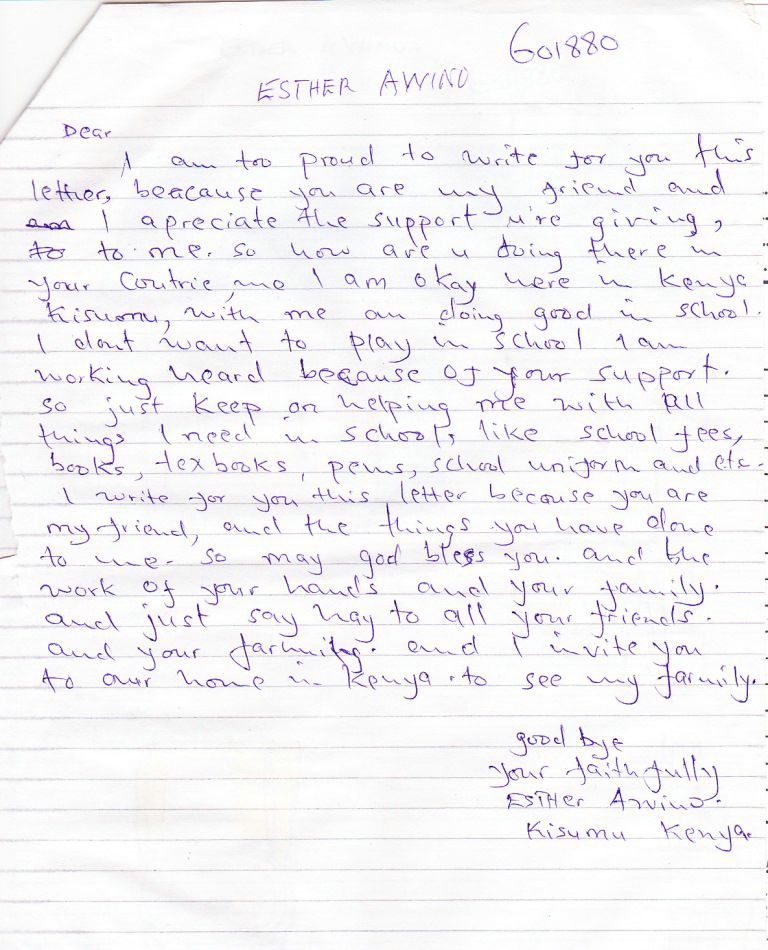 G01880
ESTHER AWINO
Dear
I am too proud to write for you this
lether, beacause you are my friend and
am I apreciate the support u're giving,
to to me. so how are u doing there in
your Coutrie, me I am okay here in Kenya
Kisumu, with me am doing good in school.
I dont want to play in school I am
working heard because of your support.
so just keep on helping me with all
things I need in school, like school fees,
books, texbooks, pens, school uniform and etc.
I write for you this letter because you are
my friend, and the things you have done
to me. so may god bless you. and the
work of your hands and your family.
and just say hay to all your friends.
and your farmily. and I invite you
to our home in Kenya. to see my farmily.
good bye
your faithfully
ESTHER Awino.
Kisumu Kenya.